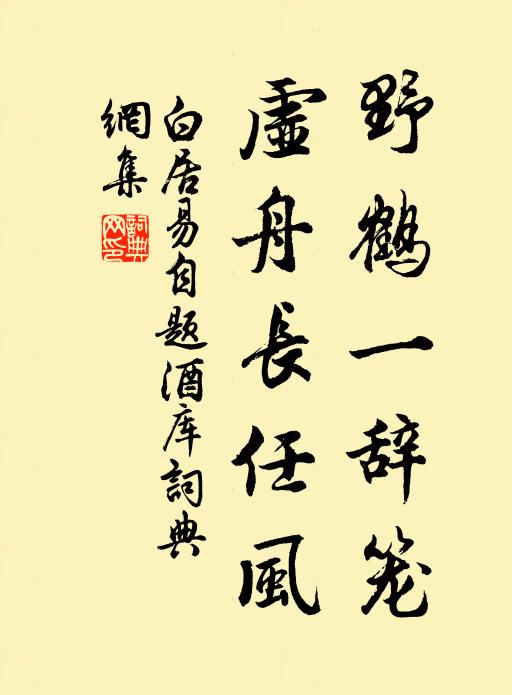 野鶴一辞笼
虛舟長任風
白居易自题酒库詞典
網集
詞典网印